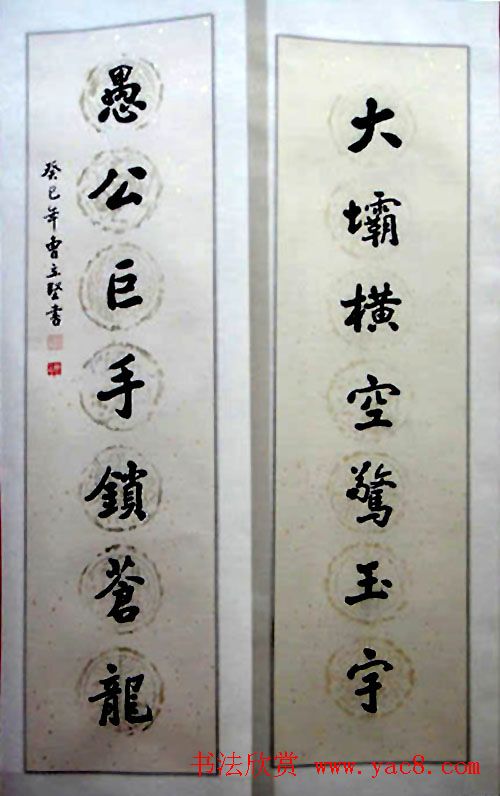 大壩橫空驚玉宇
愚公巨手鎖蒼龍
癸巳年曹立堅書
书法欣赏 www.yac8.com